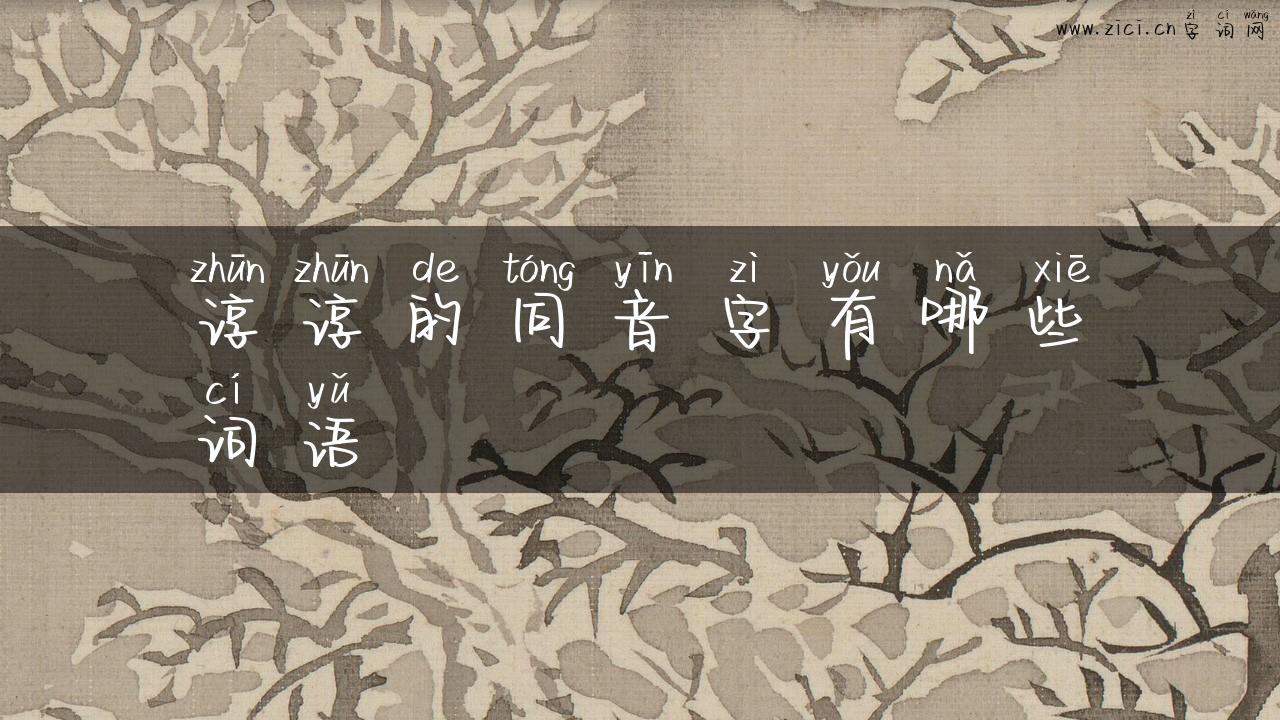 zì cí wǎng
www.zici.cn字词网
zhūn zhūn de tóng yīn zì yǒu nǎ xiē
谆谆的同音字有哪些
cí yǔ
词语